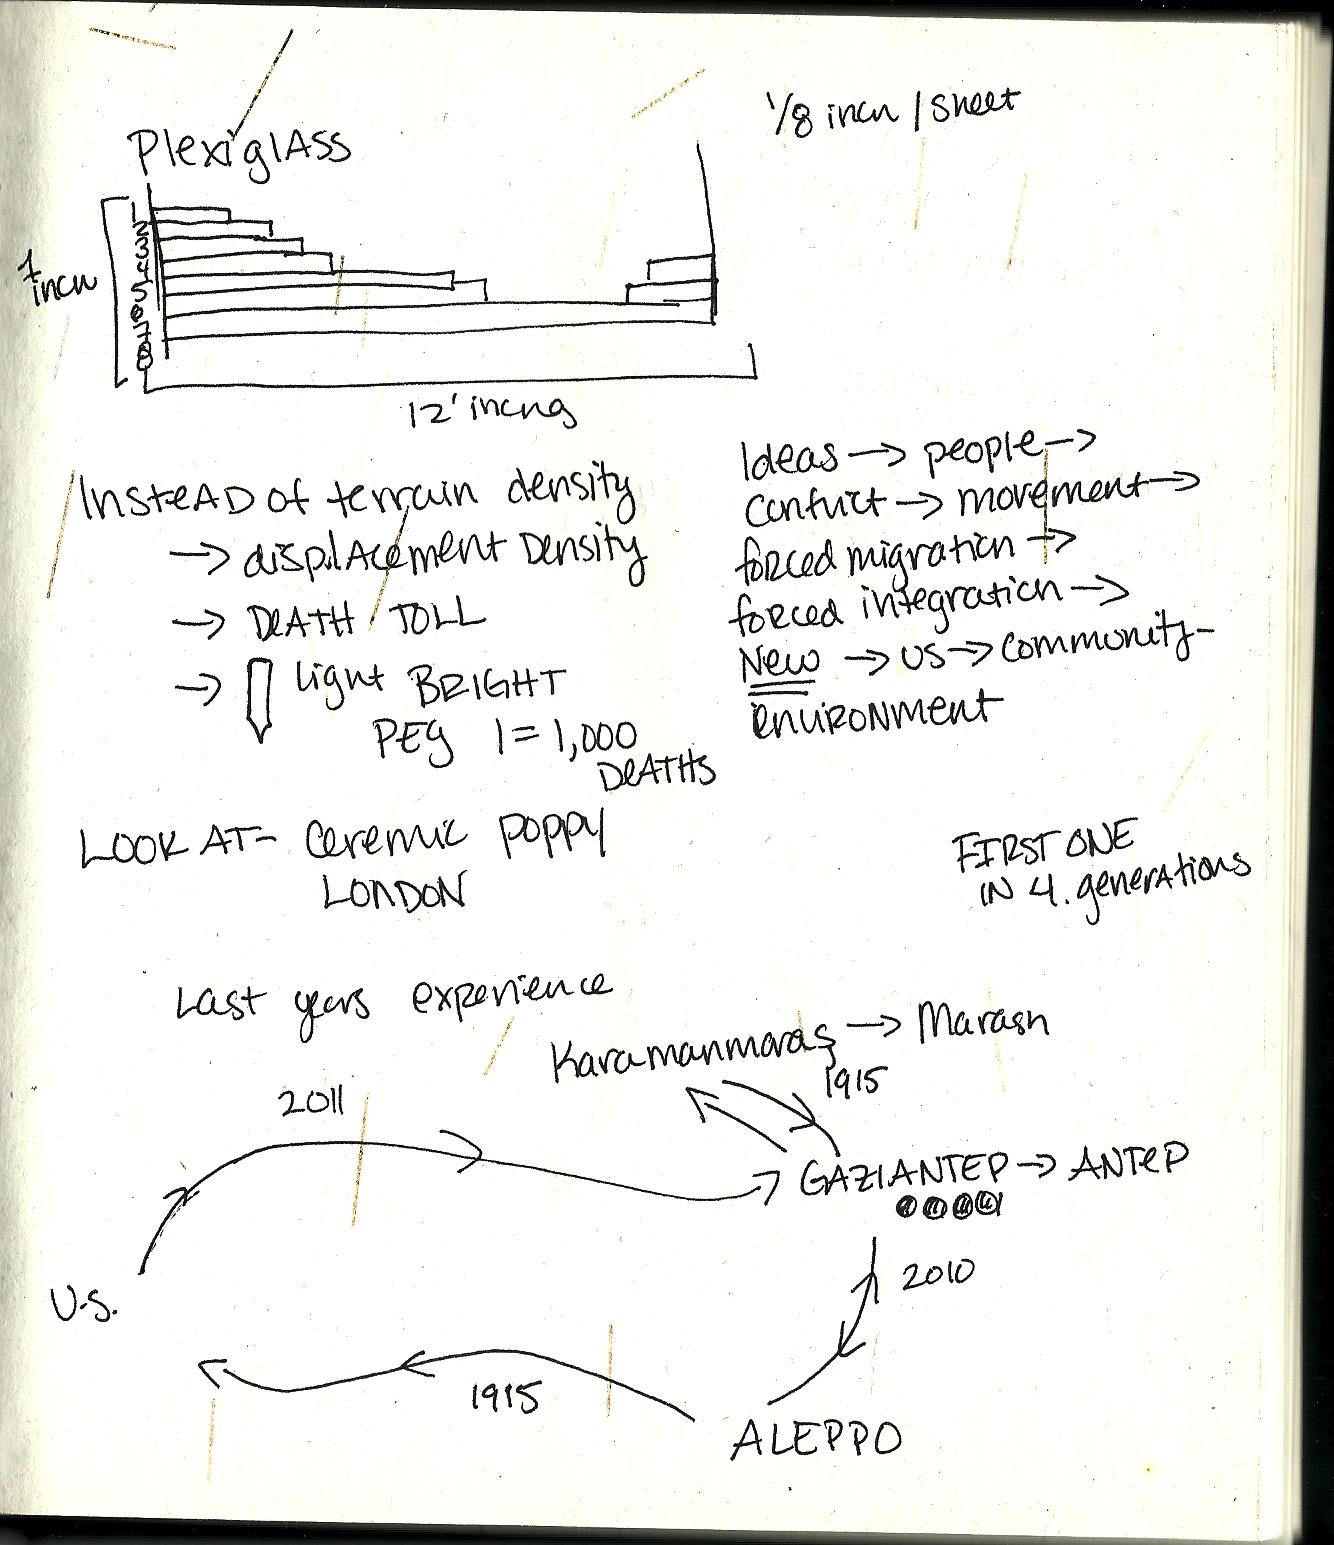 1/8 inch / Sheet
Plexiglass
1
2
3
4
5
6
7
8
1 inch
12' inches
INSTEAD of terrain density
→ displacement Density
→ DEATH TOLL
→ light BRIGHT
PEG 1 = 1,000
DEATHS
Ideas → people →
Conflict → movement →
forced migration →
forced integration →
New → US → community -
environment
LOOK AT - Ceremic poppy
LONDON
FIRST ONE
IN 4. generations
Last years experience
Karamanmaraş → Marash
1915
2011
GAZIANTEP → ANTEP
2010
U.S.
1915
ALEPPO